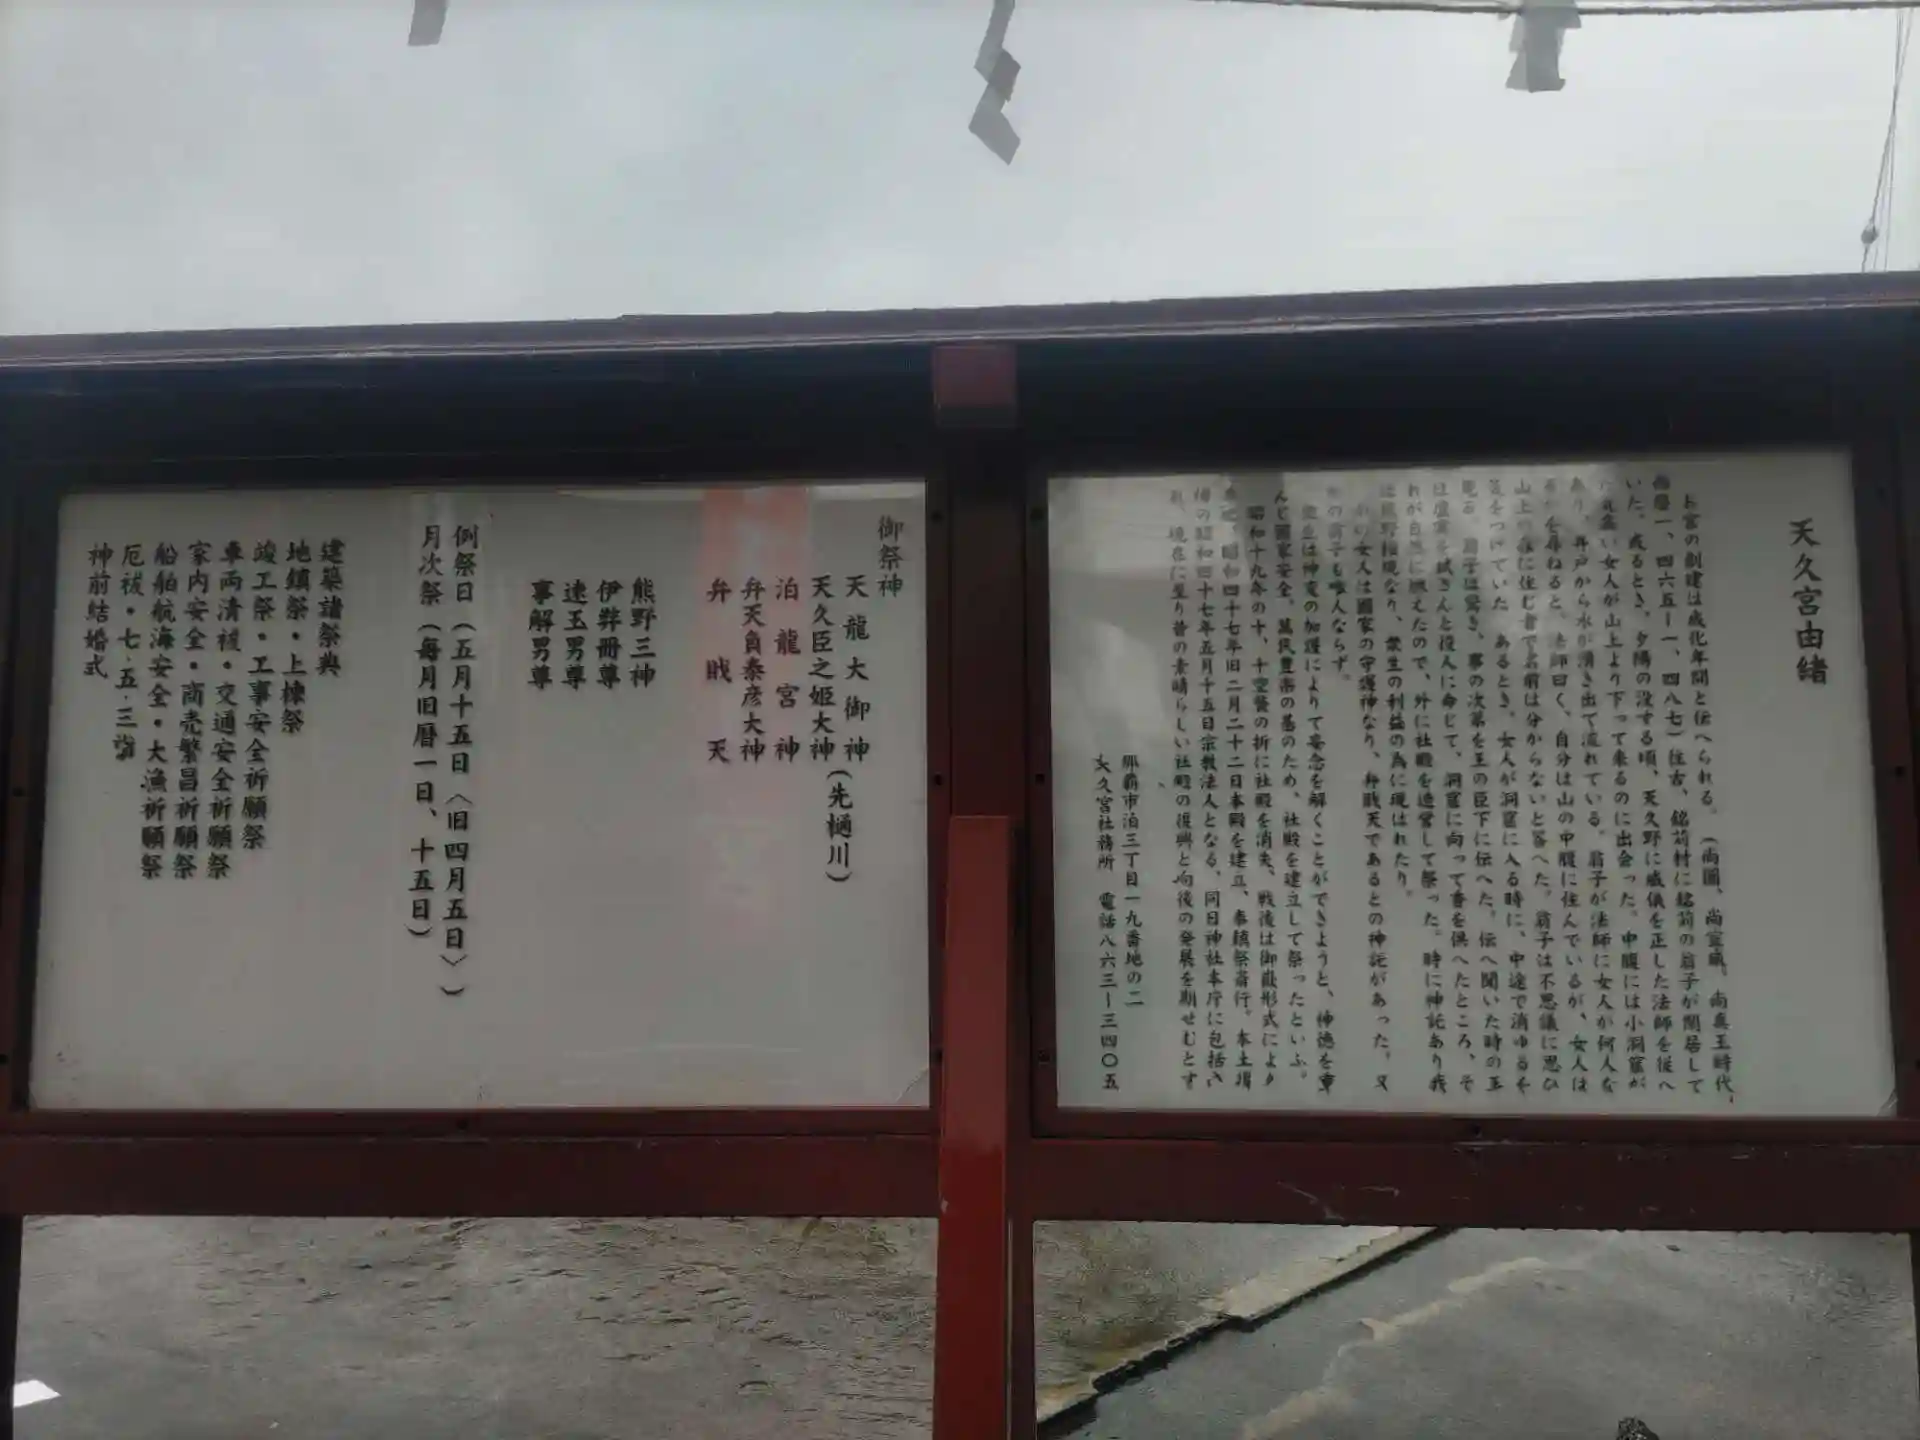 天久宮由緒
お宮の創建は成化年間と伝へられる。(尚圓、尚宣威、尚真王時代、
西暦一、四六五ー一、四八七)往古、銘苅村に銘苅の翁子が閑居して
いた。或るとき、夕陽の没する頃、天久野に威儀を正した法師を従へ
気高い女人が山上より下って来るのに出会った。中腹には小洞窟が
あり、井戸から水が湧き出て流れている。翁子が法師に女人が何人な
るかを尋ねると、法師曰く、自分は山の中腹に住んでいるが、女人は
山上の森に住む者で名前は分からないと答へた。翁子は不思議に思ひ
気をつけていた。あるとき、女人が洞窟に入る時に、中途で消ゆるを
見る。翁子は驚き、事の次第を王の臣下に伝へた。伝へ聞いた時の王
は虚実を試さんと役人に命じて、洞窟に向って香を供へたところ、そ
れが自然に燃えたので、外に社殿を造営して祭った。時に神託あり我
は熊野権現なり、衆生の利益の為に現はれたり。
の女人は國家の守護神なり、弁戝天であるとの神託があった。又
の翁子も唯人ならず。
は神変の加護によりて妄念を解くことができようと、神徳を重
んじ國家安全、萬民豊楽の基のため、社殿を建立して祭ったといふ。
昭和十九年の十、十空襲の折に社殿を消失、戦後は御嶽形式により
昭和四十七年旧二月二十二日本殿を建立、奉鎮祭斎行。本土復
帰の昭和四十七年五月十五日宗教法人となる。同日神社本庁に包括さ
れ、現在に至り昔の素晴らしい社殿の復興と向後の発展を期せむとす
那覇市泊三丁目一九番地の二
天久宮社務所 電話八六三ー三四〇五
御祭神
天龍大御神
天久臣之姫大神(先樋川)
泊龍宮神
弁天負泰彦大神
弁戝天
熊野三神
伊弉冊尊
速玉男尊
事解男尊
例祭日(五月十五日〈旧四月五日〉)
月次祭(毎月旧暦一日、十五日)
建築諸祭典
地鎮祭・上棟祭
竣工祭・工事安全祈願祭
車両清祓・交通安全祈願祭
家内安全・商売繁昌祈願祭
船舶航海安全・大漁祈願祭
厄祓・七・五・三詣
神前結婚式